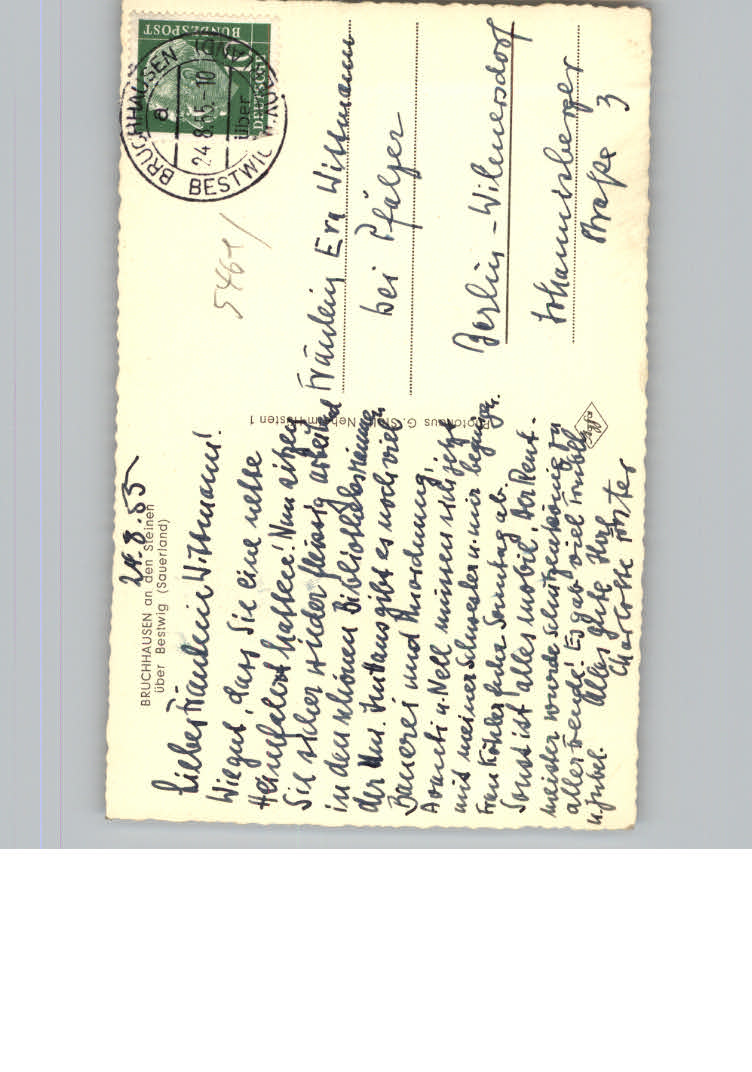 BRUCHHAUSEN an den Steinen
über Bestwig (Sauerland)
24.8.55
Liebes Fräulein Wittmann!
Wie gut, dass Sie eine nette
Heimfahrt hatten! Nun sitzen
Sie sicher wieder fleissig arbeitend
in den schönen Bibliotheksräumen
der Uni. Im Haus gibt es noch viel
Bauerei und Unordnung,
u. Nell müssen sich jetzt
mit meiner Schwester u. mir begnügen.
Frau Köhler fuhr Sonntag ab.
Sonst ist alles mobil, der Rent-
meister wurde Schützenkönig zu
aller Freude! Es gab viel Trubel
u. Jubel. Alles Gute Ihre
Charlotte Förster
Photohaus G. Neheim-Hüsten 1
Agfa
5461/
BUNDESPOST
BRUCHHAUSEN
über
BESTWIG
a
24.8.55.-10
Fräulein Eva Wittmann
bei Pfälzer
Berlin-Wilmersdorf
Johannisberger
Straße 3